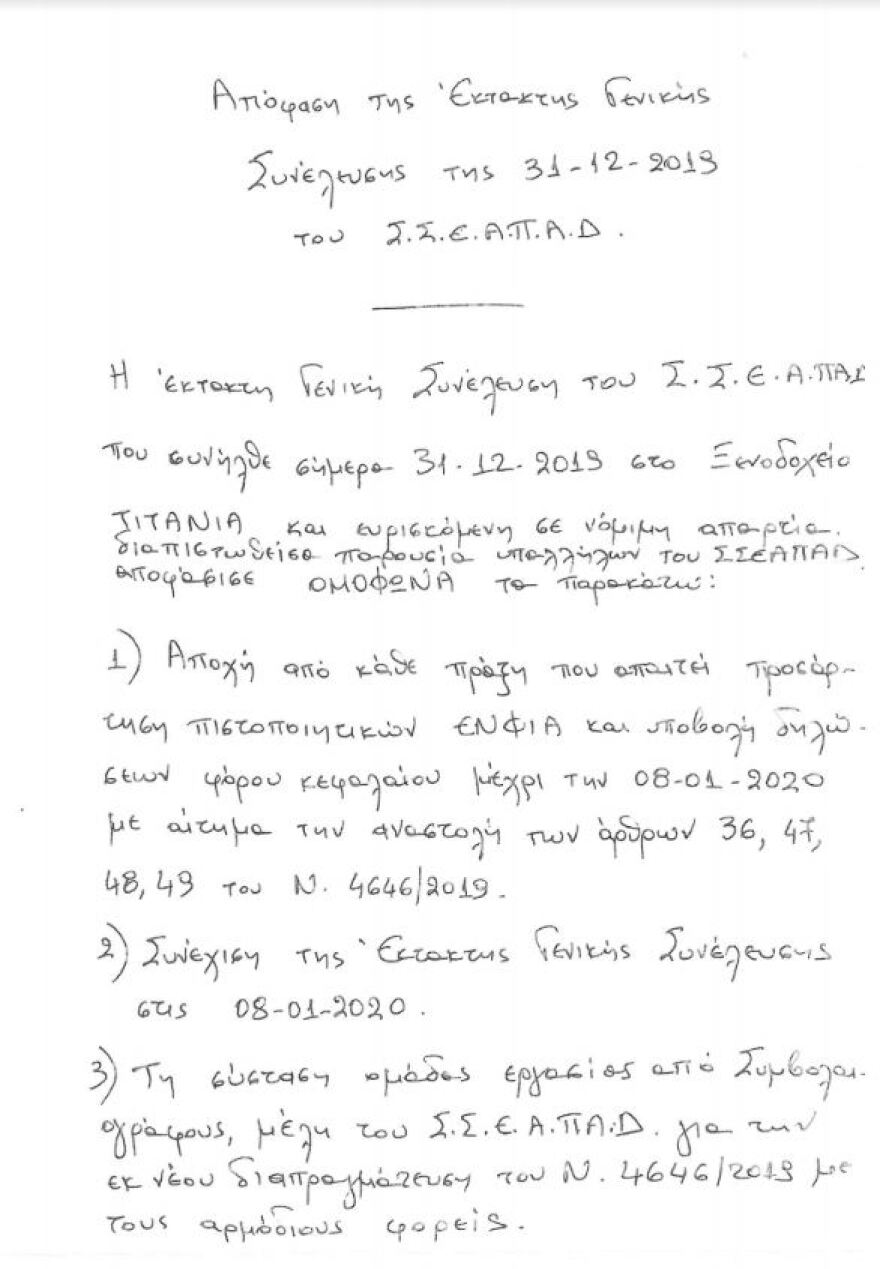 Απόφαση της Έκτακτης Γενικής
Συνέλευσης της 31-12-2019
του Σ.Σ.Ε.Α.Π.Α.Δ.
Η Έκτακτη Γενική Συνέλευση του Σ.Σ.Ε.Α.ΠΑΔ
που συνήλθε σήμερα 31.12.2019 στο Ξενοδοχείο
ΤΙΤΑΝΙΑ και ευρισκόμενη σε νόμιμη απαρτία,
διαπιστωθείσα παρουσία υπαλλήλων του ΣΣΕΑΠΑΔ
αποφάσισε ΟΜΟΦΩΝΑ τα παρακάτω:
1) Αποχή από κάθε πράξη που απαιτεί προσάρ-
τηση πιστοποιητικών ΕΝΦΙΑ και υποβολή δηλώ-
σεων φόρου κεφαλαίου μέχρι την 08-01-2020
με αίτημα την αναστολή των άρθρων 36, 47,
48, 49 του Ν. 4646/2019.
2) Συνέχιση της Έκτακτης Γενικής Συνέλευσης
στις 08-01-2020.
3) Τη σύσταση ομάδας εργασίας από Συμβολαι-
ογράφους, μέλη του Σ.Σ.Ε.Α.ΠΑ.Δ. για την
εκ νέου διαπραγμάτευση του Ν. 4646/2019 με
τους αρμόδιους φορείς.